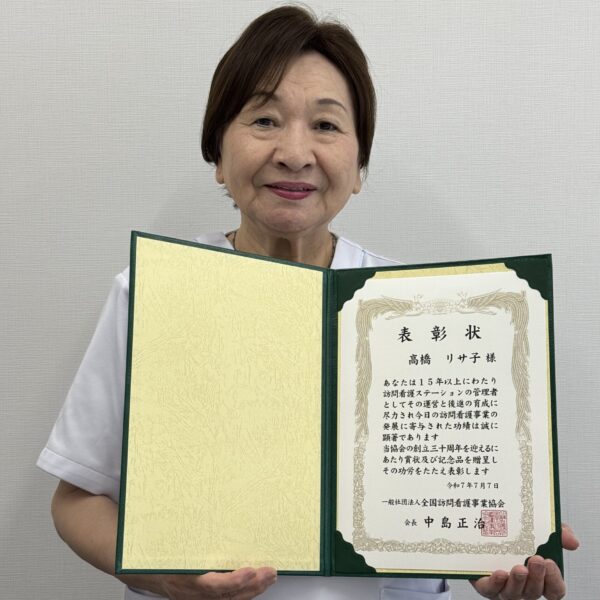 表彰状
高橋 リサ子 様
あなたは15年以上にわたり
訪問看護ステーションの管理者
としてその運営と後進の育成に
尽力され今日の訪問看護事業の
発展に寄与された功績は誠に
顕著であります
当協会の創立三十周年を迎えるに
あたり賞状及び記念品を贈呈し
その功労をたたえ表彰します
令和7年7月7日
一般社団法人 全国訪問看護事業協会
会長 中島正治